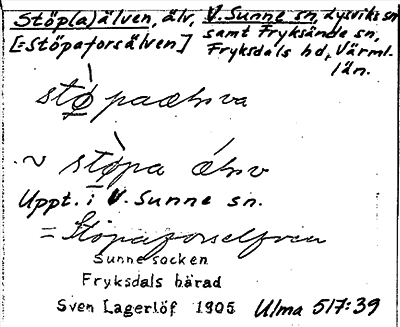 Stöp(a)älven, älv, V. Sunne sn, Lysviks sn
[=Stöpaforsälven] samt Fryksände sn,
Fryksdals hd, Värml.
län.
~ støpa
Uppt. i V. Sunne sn.
= Stöpaforselfven
Sunne socken
Fryksdals härad
Sven Lagerlöf 1905 Ulma 517:39